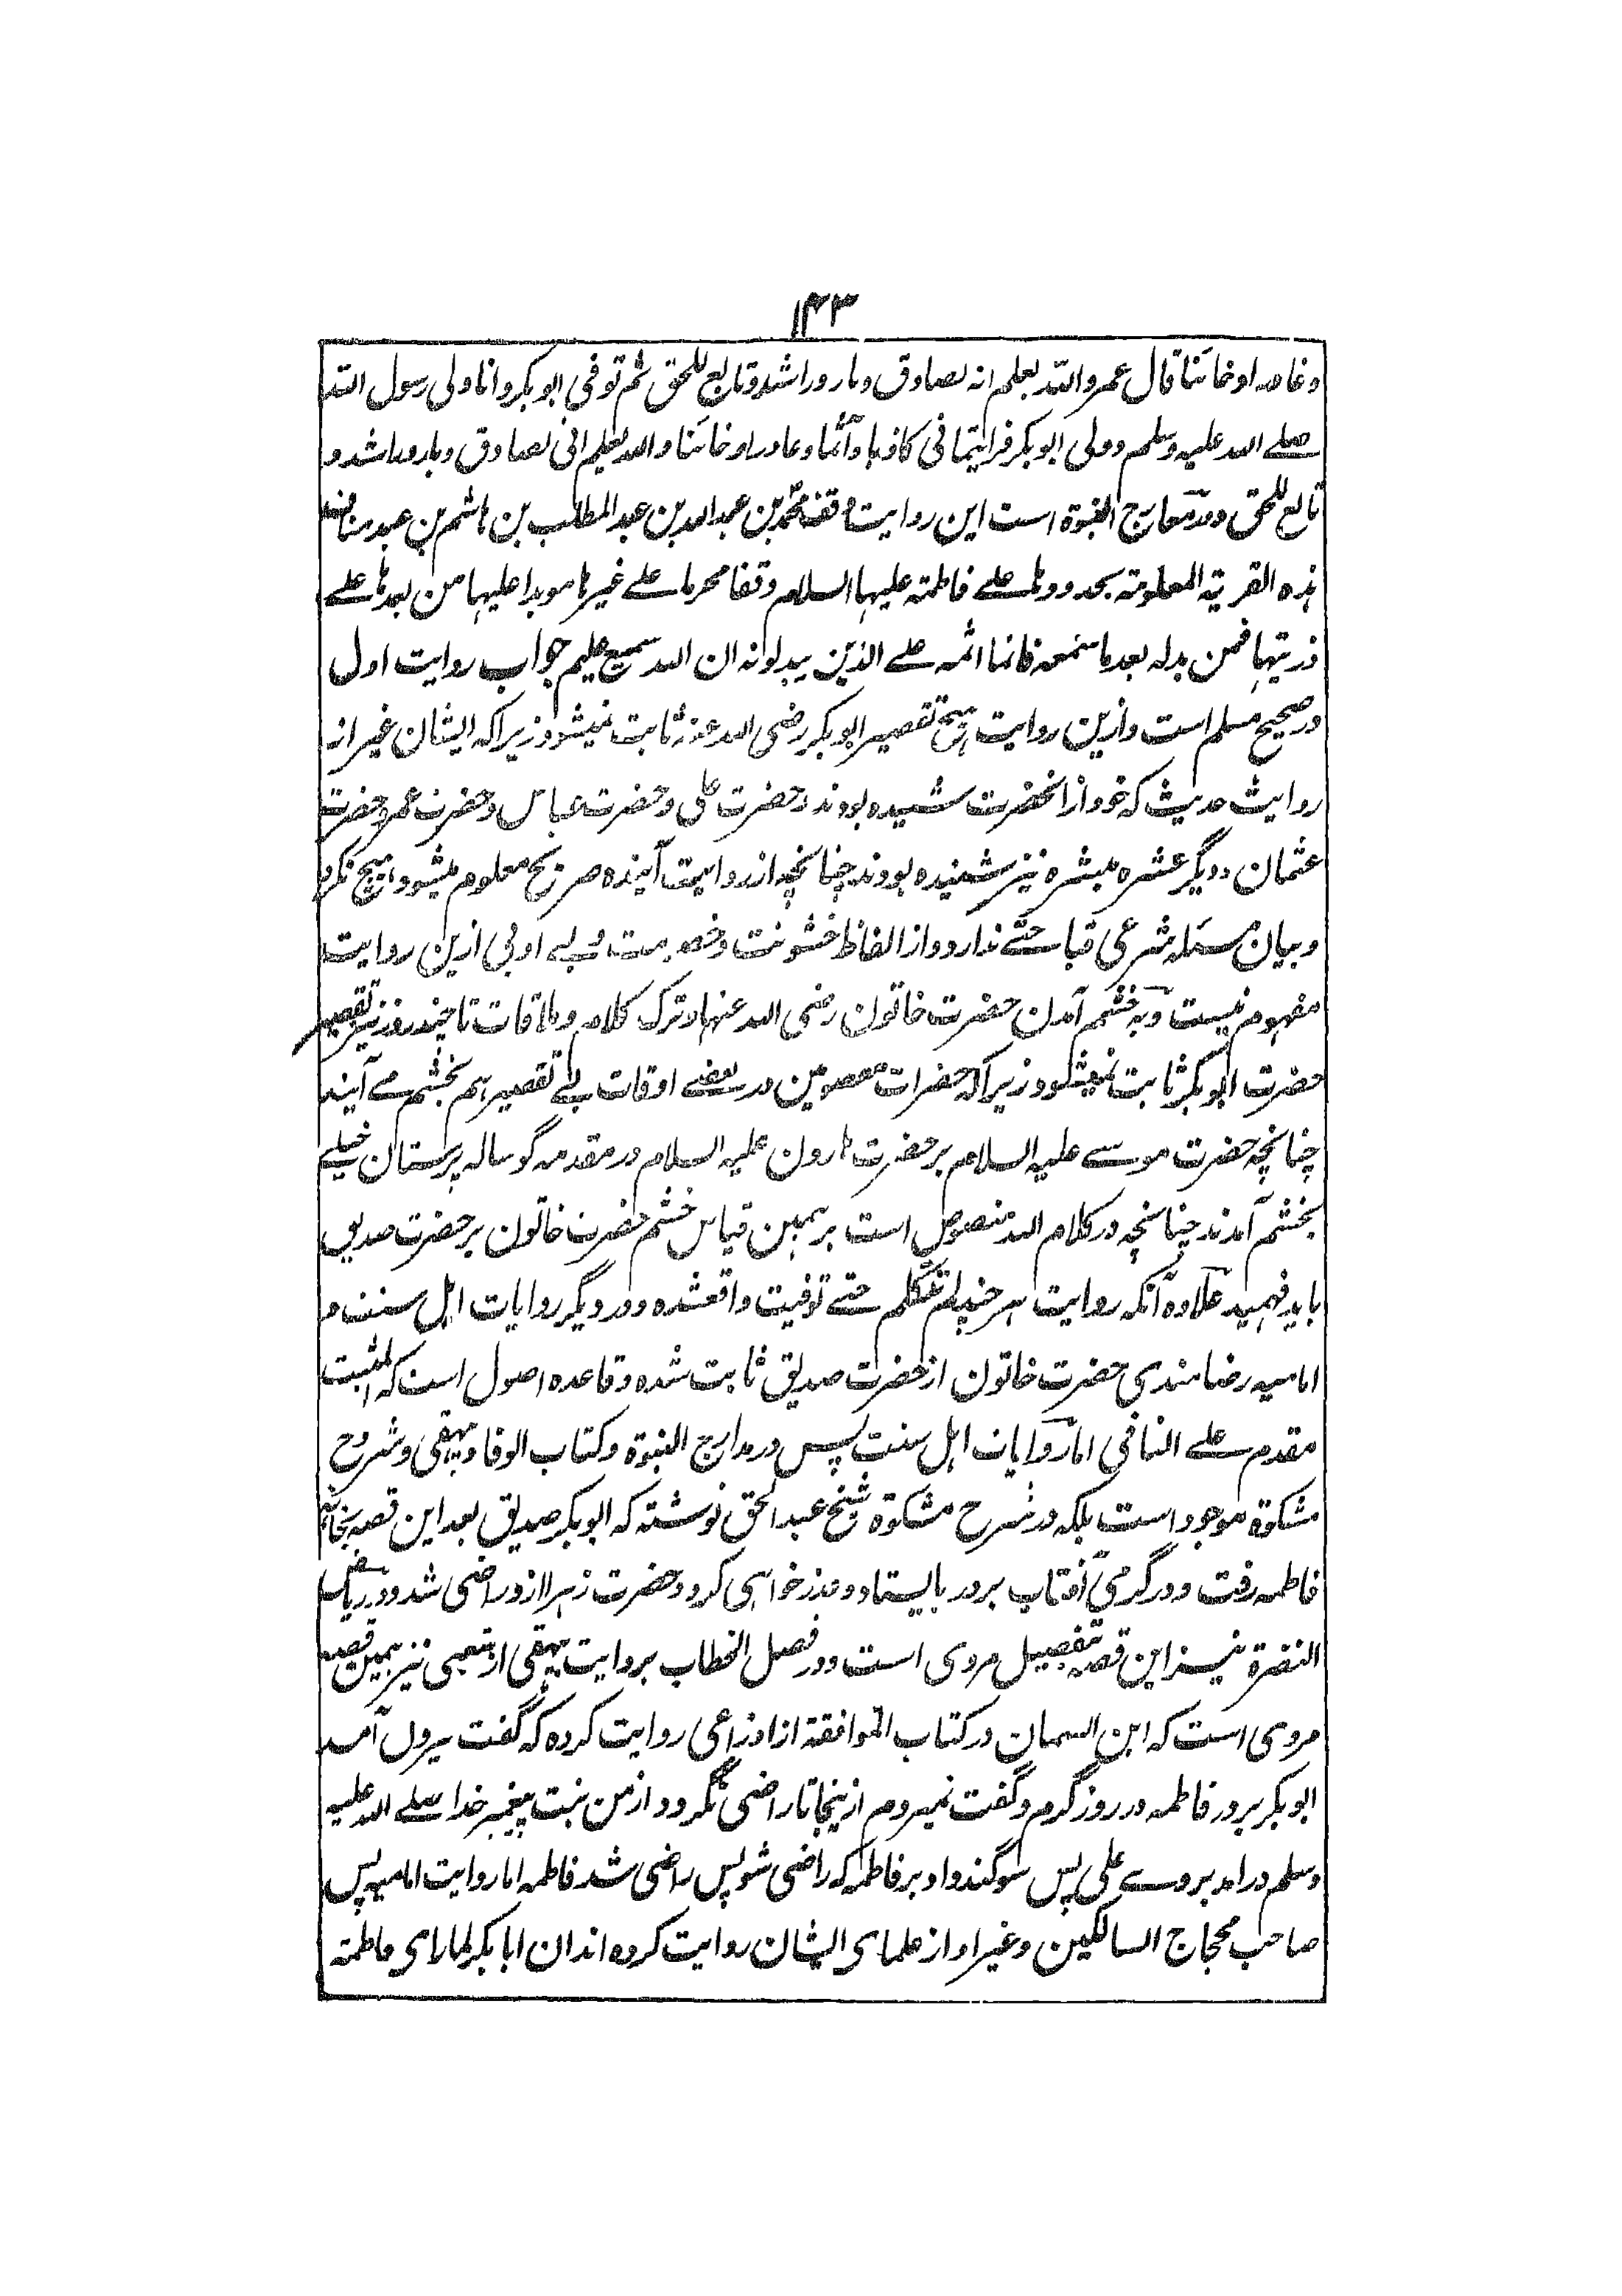 ۱۴۳
وغاصہ اوخائنا قال عمر واللہ یعلم انہ لصادق وبار وراشد وتابع للحق ثم توفی ابوبکر وانا ولی رسول اللہ
صلے اللہ علیہ وسلم وولی ابوبکر فرایتمانی کاذبا وآثما وغادرا وخائنا واللہ یعلم انی لصادق وبار وراشد و
تابع للحق ودر معارج النبوۃ است این روایت وقف محمد بن عبداللہ بن عبدالمطلب بن ہاشم بن عبد مناف
ہذہ القریۃ المعلومۃ بحدودہا علے فاطمۃ علیہا السلام وقفا محرما علے غیرہا موبدا علیہا من بعدہا علے
ذریتہا فمن بدلہ بعد ما سمعہ فانما اثمہ علے الذین یبدلونہ ان اللہ سمیع علیم جواب روایت اول
در صحیح مسلم است وازین روایت ہیچ تقصیر ابوبکر رضی اللہ عنہ ثابت نمیشود زیراکہ ایشان غیر از
روایت حدیث کہ خود از انحضرت شنیدہ بودند وحضرت علی وحضرت عباس وحضرت عمر وحضرت
عثمان ودیگر عشرہ مبشرہ نیز شنیدہ بودند چنانچہ از روایت آیندہ صریح معلوم میشود ہیچ نکرد
وبیان مسئلہ شرعی قباحتے ندارد واز الفاظ خشونت وخصومت وبے ادبی ازین روایت
مفہوم نیست وبہ خشم آمدن حضرت خاتون رضی اللہ عنہا وترک کلام وملاقات تا چند روز نیز تقصیر
حضرت ابوبکر ثابت نمیشود زیراکہ حضرات معصومین در بعضے اوقات بے تقصیر ہم بخشم مے آیند
چنانچہ حضرت موسے علیہ السلام بر حضرت ہارون علیہ السلام در مقدمہ گوسالہ پرستان خیلے
بخشم آمدند چنانچہ در کلام اللہ منصوص است بر ہمین قیاس خشم حضرت خاتون بر حضرت صدیق
باید فہمید علاوہ آنکہ روایت ہر چند لم تتکلم حتے توفیت واقعشدہ ودر دیگر روایات اہل سنت و
امامیہ رضامندی حضرت خاتون از حضرت صدیق ثابت شدہ وقاعدہ اصول است کہ المثبت
مقدم علے النافی اما روایات اہل سنت پس در مدارج النبوۃ وکتاب الوفا وبیہقی وشروح
مشکوۃ موجود است بلکہ در شرح مشکوۃ شیخ عبدالحق نوشتہ کہ ابوبکر صدیق بعد این قصہ بخانہ
فاطمہ رفت ودر گرمی آفتاب بر در بایستاد وعذر خواہی کرد وحضرت زہرا ازو راضی شد ودر ریاض
النضرۃ نیز این قصہ بتفصیل مروی است ودر فصل الخطاب بروایت بیہقی از شعبی نیز ہمین قصہ
مروی است کہ ابن السمان در کتاب الموافقۃ از اوزاعی روایت کردہ کہ گفت بیرون آمد
ابوبکر بر در فاطمہ در روز گرم وگفت نمیروم از ینجا تا راضی نگردد از من بنت پیغمبر خدا صلے اللہ علیہ
وسلم در امد بروے علی پس سوگند داد بر فاطمہ کہ راضی شو پس راضی شد فاطمہ اما روایت امامیہ پس
صاحب محجاج السالکین وغیر او از علمای ایشان روایت کردہ اند ان ابابکر لما رای فاطمۃ